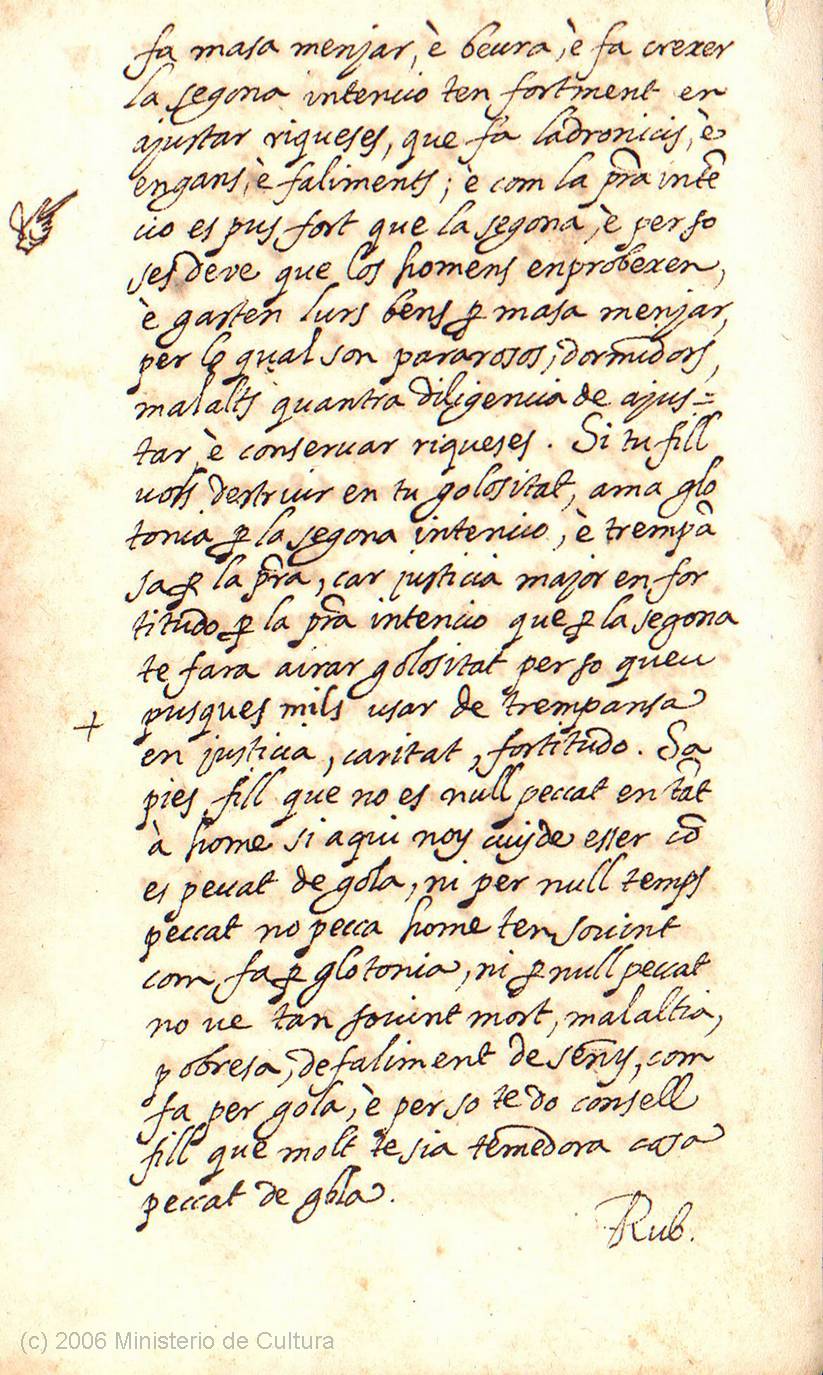 fa masa menjar, è beura, è fa crexer
la segona intencio ten fortment en
ajustar riqueses, que fa ladronicis, è
engans, è faliments; è com la pr̃a intẽ
cio es pus fort que la segona, è per so
ses deve que los homens enproberen,
è gasten lurs bens ꝑ masa menjar,
per lo qual son pararosos, dormidors,
malalts quantra diligencia de ajus=
tar è conservar riqueses. Si tu fill
vols destruir en tu golositat, ama glo
tonia ꝑ la segona intencio, è trempã
sa ꝑ la pr̃a, car justicia major en for
titudo ꝑ la pr̃a intencio que ꝑ la segona
te fara airar golositat per so queu
pusques mils usar de trempansa
en justicia, caritat, fortitudo. Sa
pies fill que no es null peccat en tãt
à home si aqui noy cuyde esser cõ
es peccat de gola, ni per null temps
peccat no pecca home ten sovint
com fa ꝑ glotonia, ni ꝑ null peccat
no ve tan sovint mort, malaltia,
pobresa, defaliment de seny, com
fa per gola, è per so te do consell
fill que molt te sia temedora casa
peccat de gola.
Rub.
(c) 2006 Ministerio de Cultura